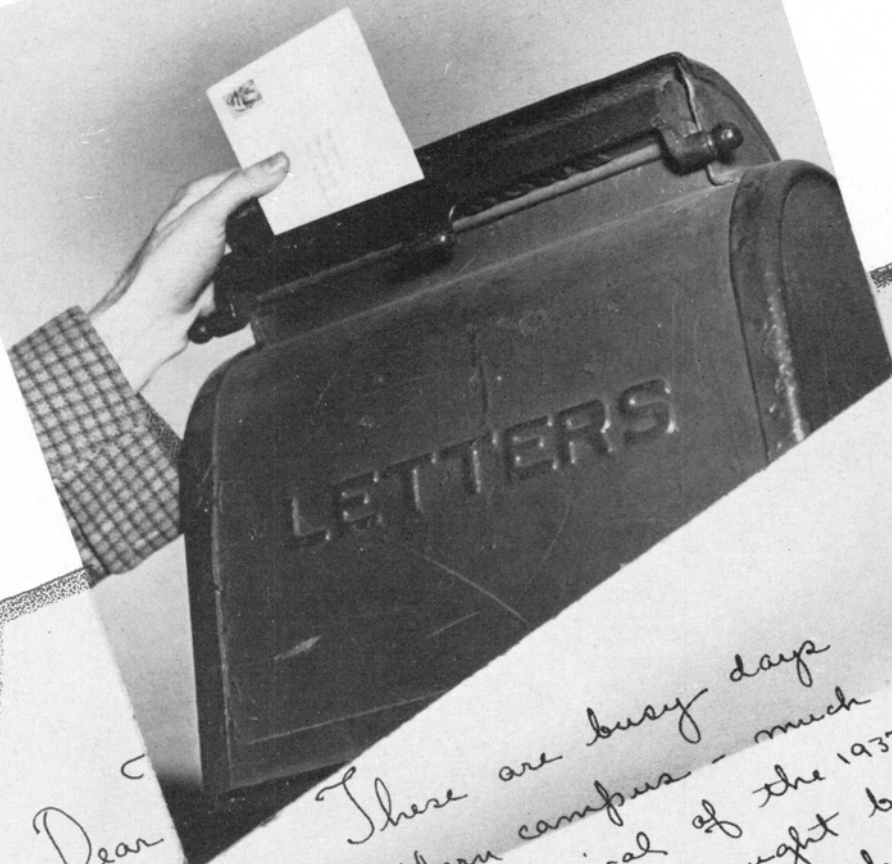 LETTERS
Dear
These are busy days
campus - much
of the 1937